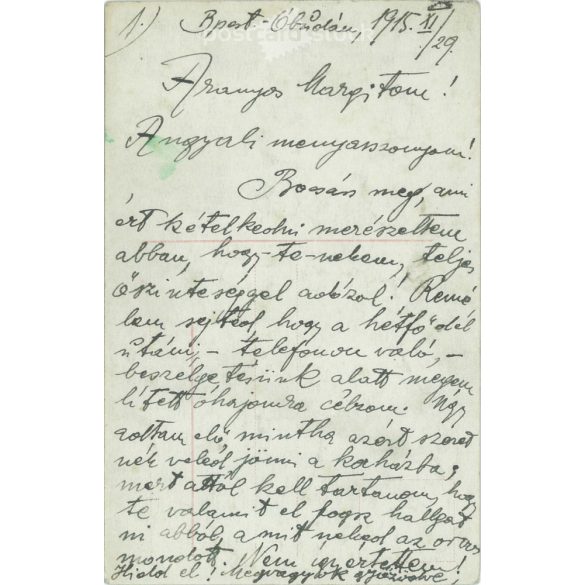 1.) Bpest-Óbudán, 1915. XI/29.
Aranyos Margitom!
Angyali menyasszonyom!
Bocsáss meg, ami
ért kételkedni merészeltem
abban, hogy-te-nekem, teljes
őszinteséggel adózol! Remé
lem sejtéd, hogy a hétfő dél
utáni, - telefonon való, -
beszélgetésünk alatt megem
lített óhajomra célzom. Úgy
adtam elő mintha azért szeret
nék veled jönni a kórházba;
mert attól kell tartanom, hogy
te valamit el fogsz hallgat
ni abból, amit neked az orvos
mondott. Nem így értettem!
el! Megvagyok győződve